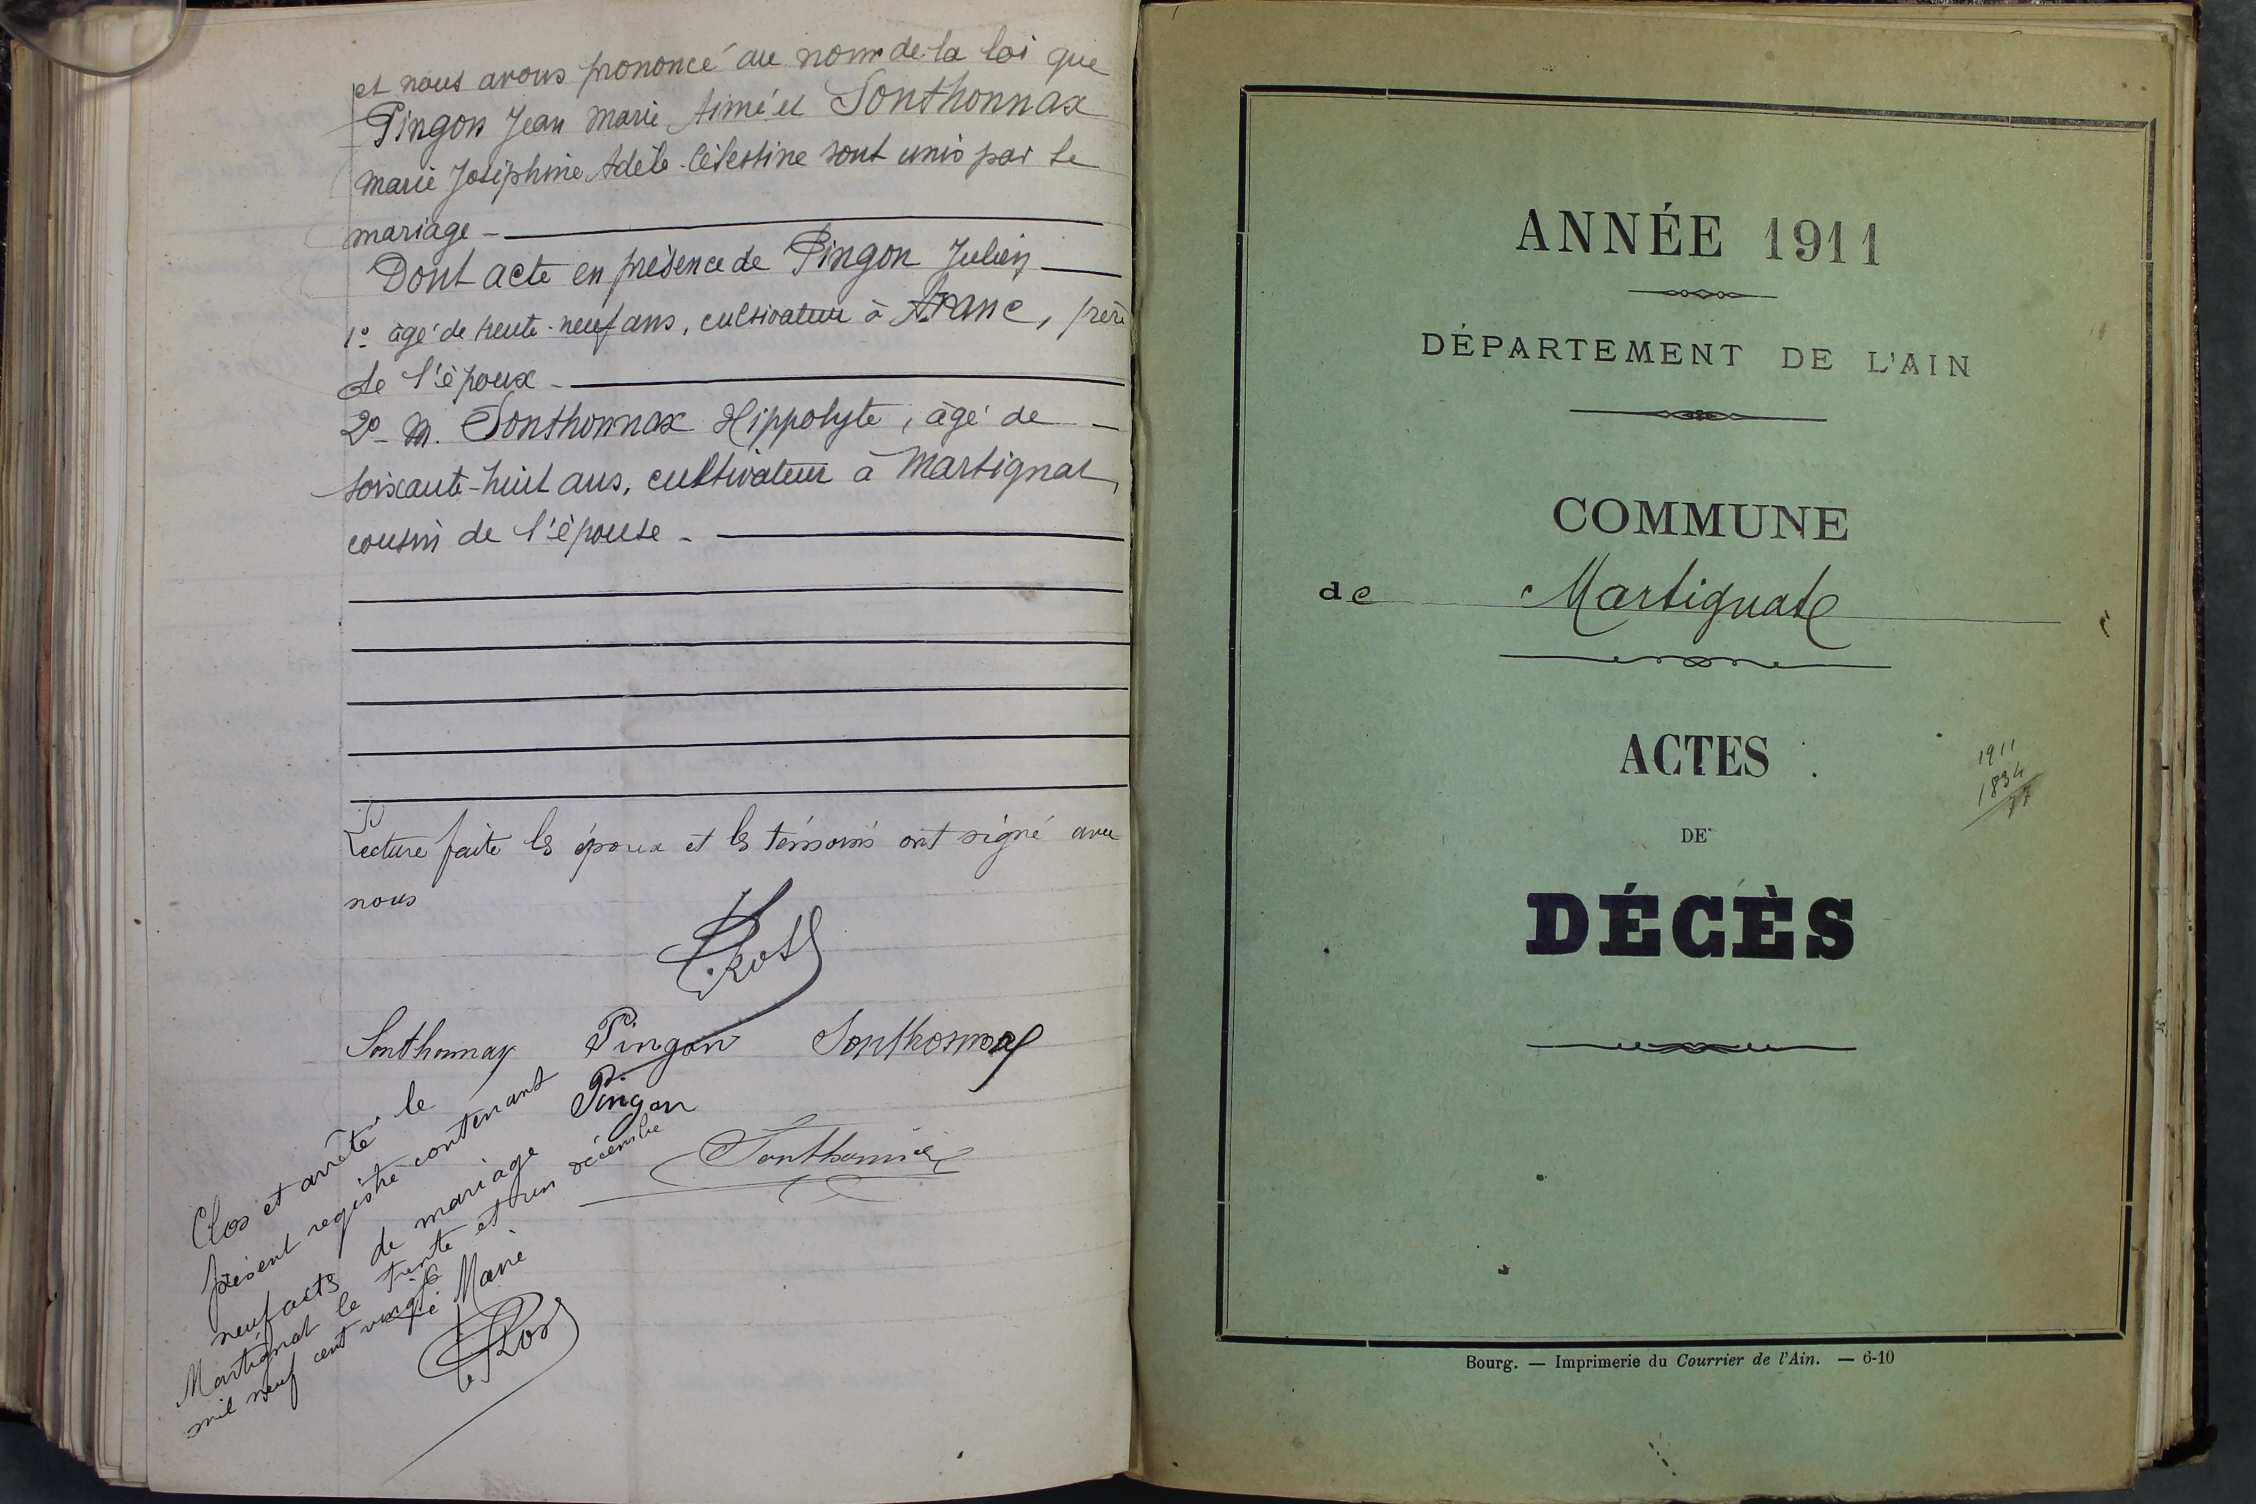 et nous avons prononcé au nom de la loi que
Pingon Jean Marie Aimé et Sonthonnax
Marie Joséphine Adèle Célestine sont unis par le
mariage -
Dont acte en présence de Pingon Julien
1º âgé de trente-neuf ans, cultivateur à Aranc, frère
de l'époux -
2º M. Sonthonnax Hippolyte, âgé de -
soixante-huit ans, cultivateur à Martignat,
cousin de l'épouse -
Lecture faite les époux et les témoins ont signé avec
nous
Sonthonnax Pingon Sonthonnax
Pingon
Sonthonnax
Clos et arrêté le
présent registre contenant
neuf actes de mariage
Martignat le trente et un décembre
mil neuf cent vingt
Maire
ANNÉE 1911
DÉPARTEMENT DE L'AIN
COMMUNE
de Martignat
ACTES
1911
1834
77
DE
DÉCÈS
Bourg. — Imprimerie du Courrier de l'Ain. — 6-10